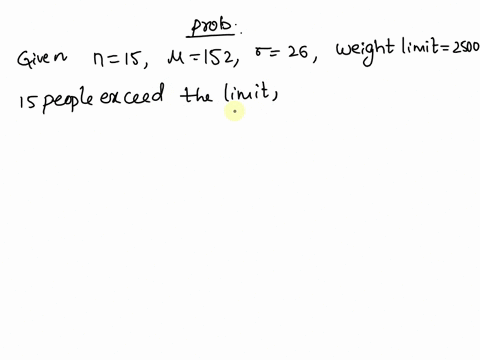 prob.
Given n=15, μ=152, σ=26, weight limit=2500
15 people exceed the limit,